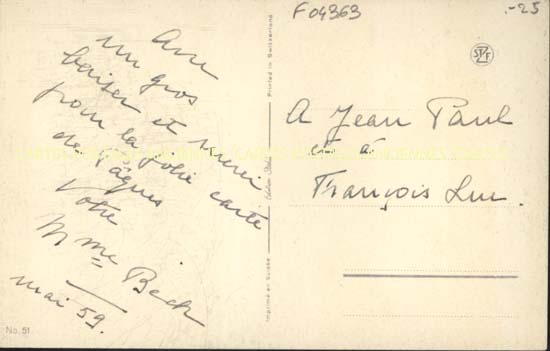 F04363
.-25
Avec
un gros
baiser et merci
pour la jolie carte
de Pâques
Votre
Mme Beck
mai 59.
No. 51
Printed in Switzerland
Imprimé en Suisse
A Jean Paul
et à
François Luc.